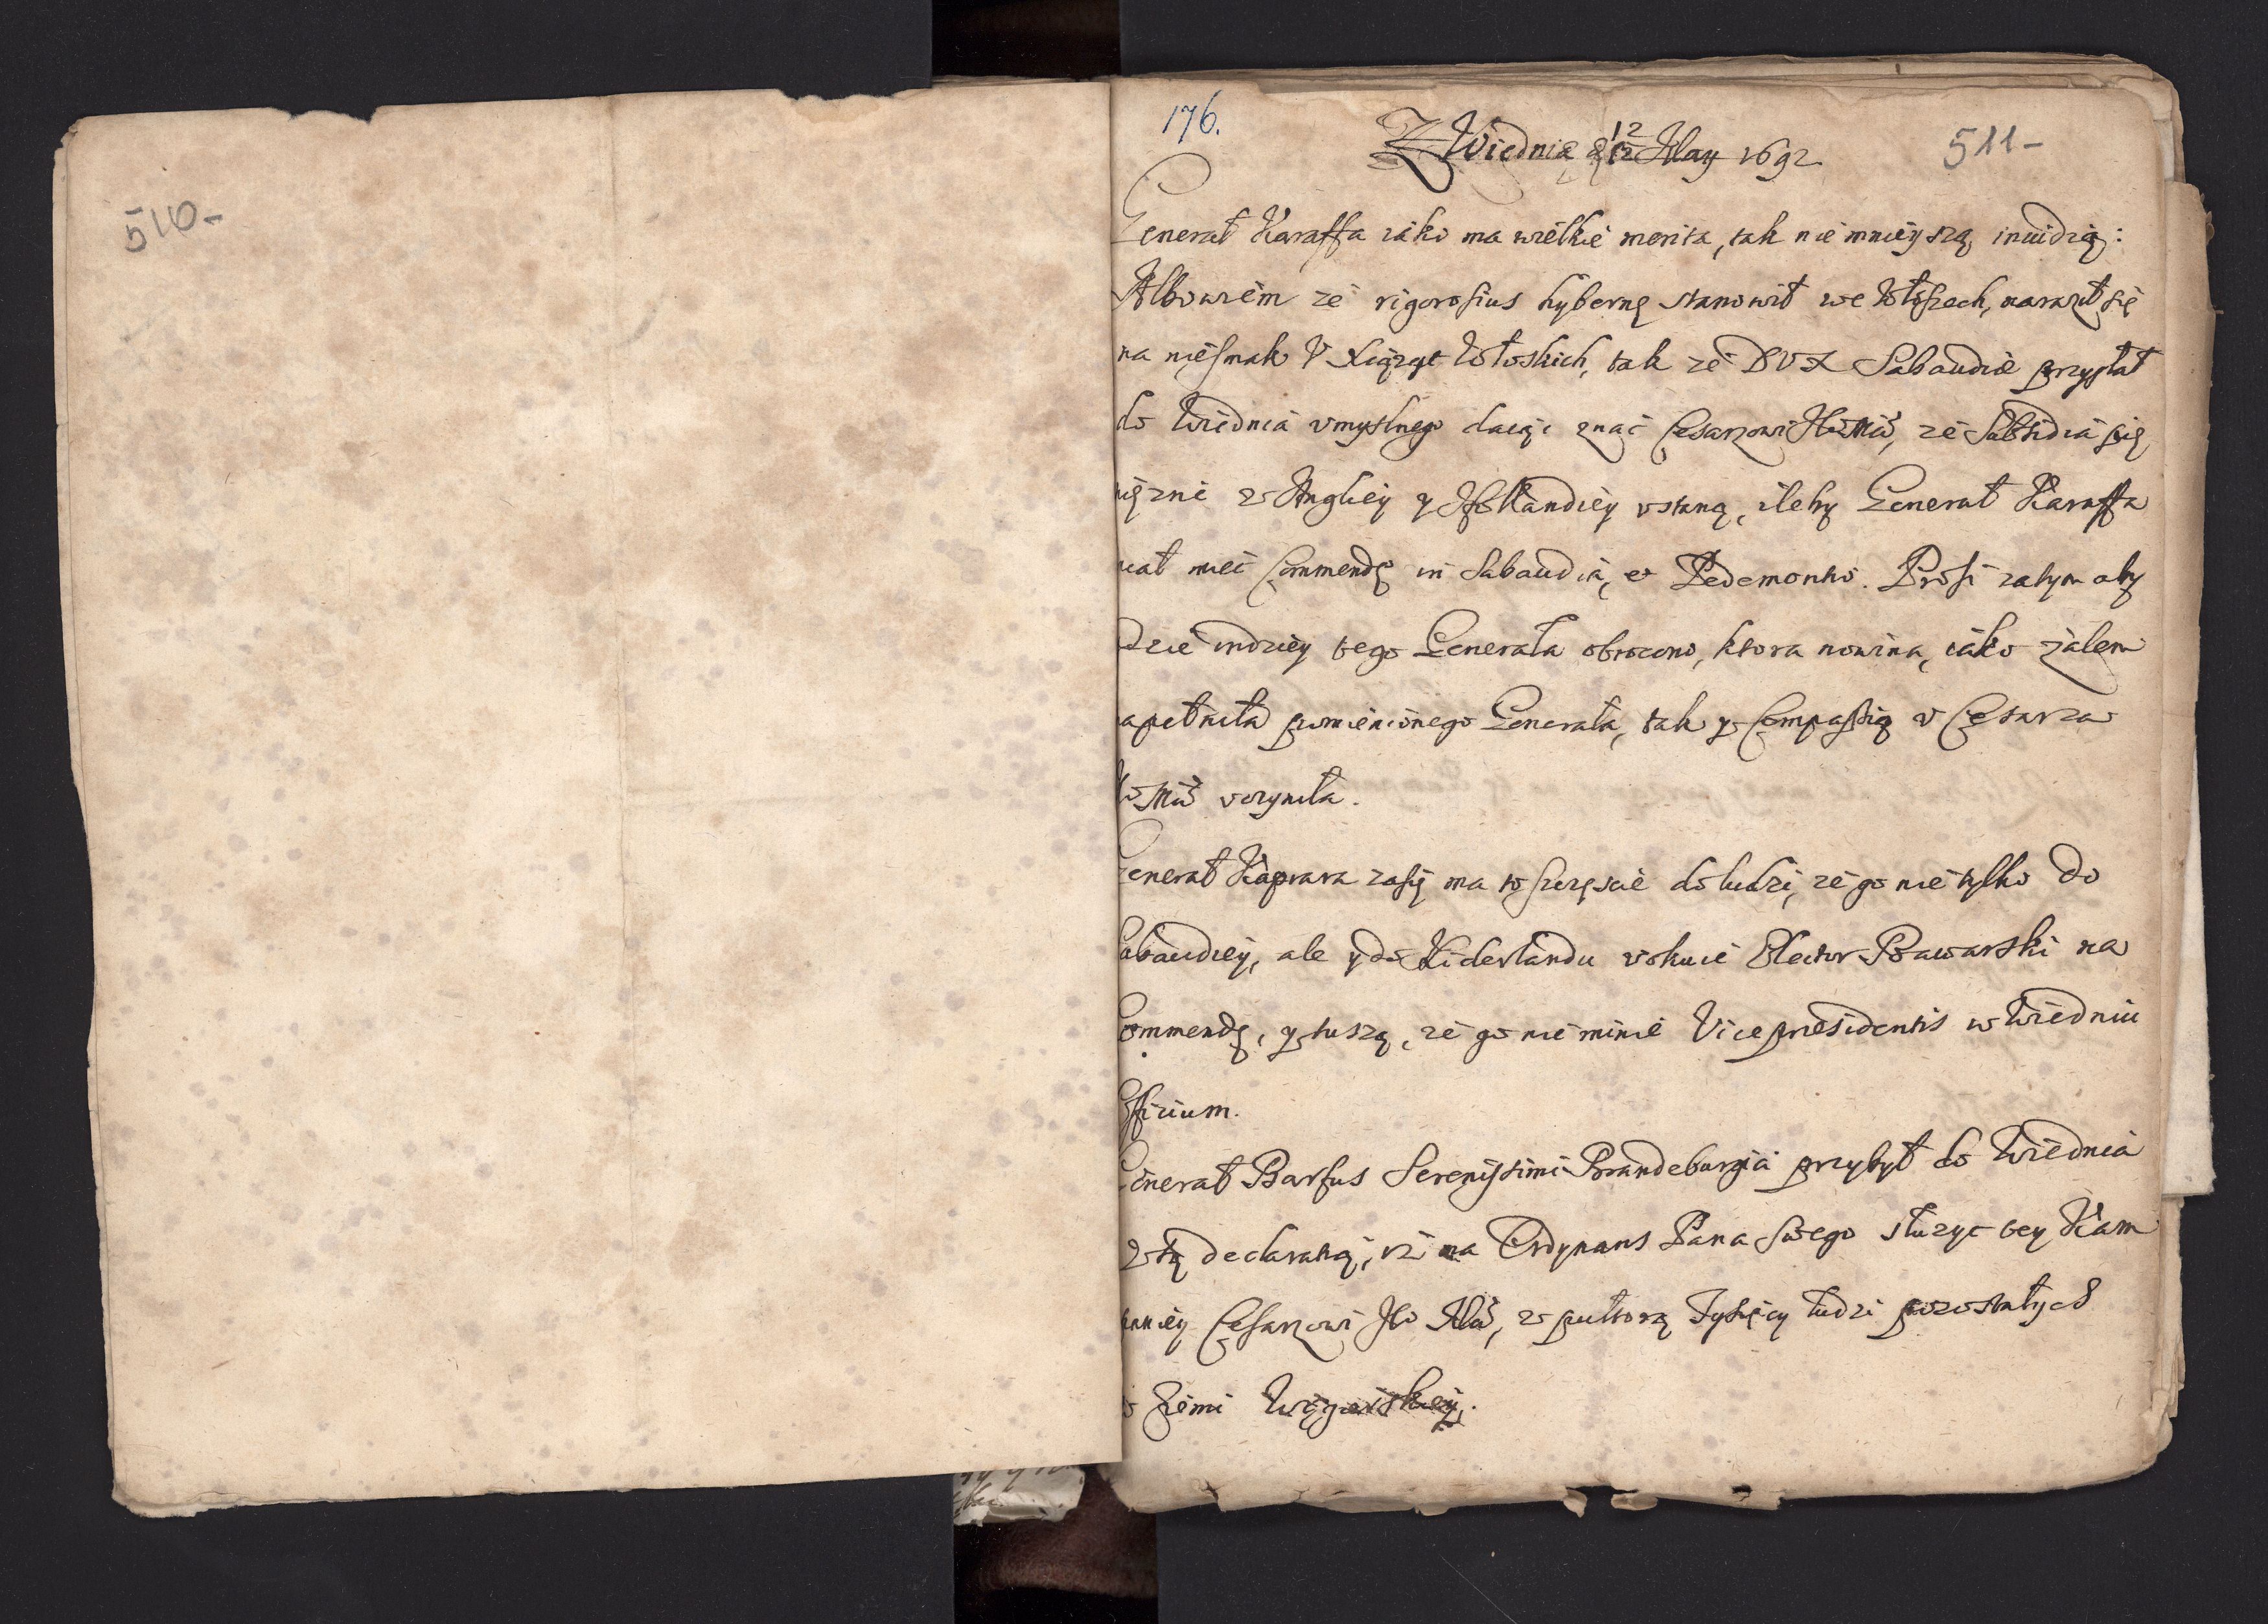 510-
176.
511-
Z Wiednia d 12 May 1692
Generał Karaffa iako ma wielkie merita, tak nie mnieyszą inuidią:
Albowiem ze rigorosius hybernę stanowił we Włoszech, naraził się
na niesmak V Xiąząt Włoskich, tak ze DUX Sabaudiæ przysłał
do Wiednia vmyslnego daiąc znac Cesarzowi Je Mci, ze Subsidia pię
nięzne z Angliey y Hollandiey vstaną, ileby Generał Karaffa
miał miec Commendę in Sabaudia, et Pedemontio. Prosi zatym aby
gdzie indziey tego Generała obrocono, ktora nowina, iako zalem
napełniła pomienionego Generała, tak y Compassią v Cesarza
Je Mci vczyniła.
Generał Kaprara zasię ma to szczęscie do ludzi, ze go nie tylko do
Sabaudiey, ale y do Niderlandu vokuie Elector Bawarski na
Commendę, y tuszą, ze go nie minie Vicepræsidentis w Wiedniu
Officium.
Generał Barfus Serenissimi Brandeburgici przybył do Wiednia
z tą declaratią, iz ma Ordynans Pana swego słuzyc tey Kam
paniey Cesarzowi Je Mci, z pułtorą Tysięcy ludzi pozostałych
w Ziemi Węgierskiey.